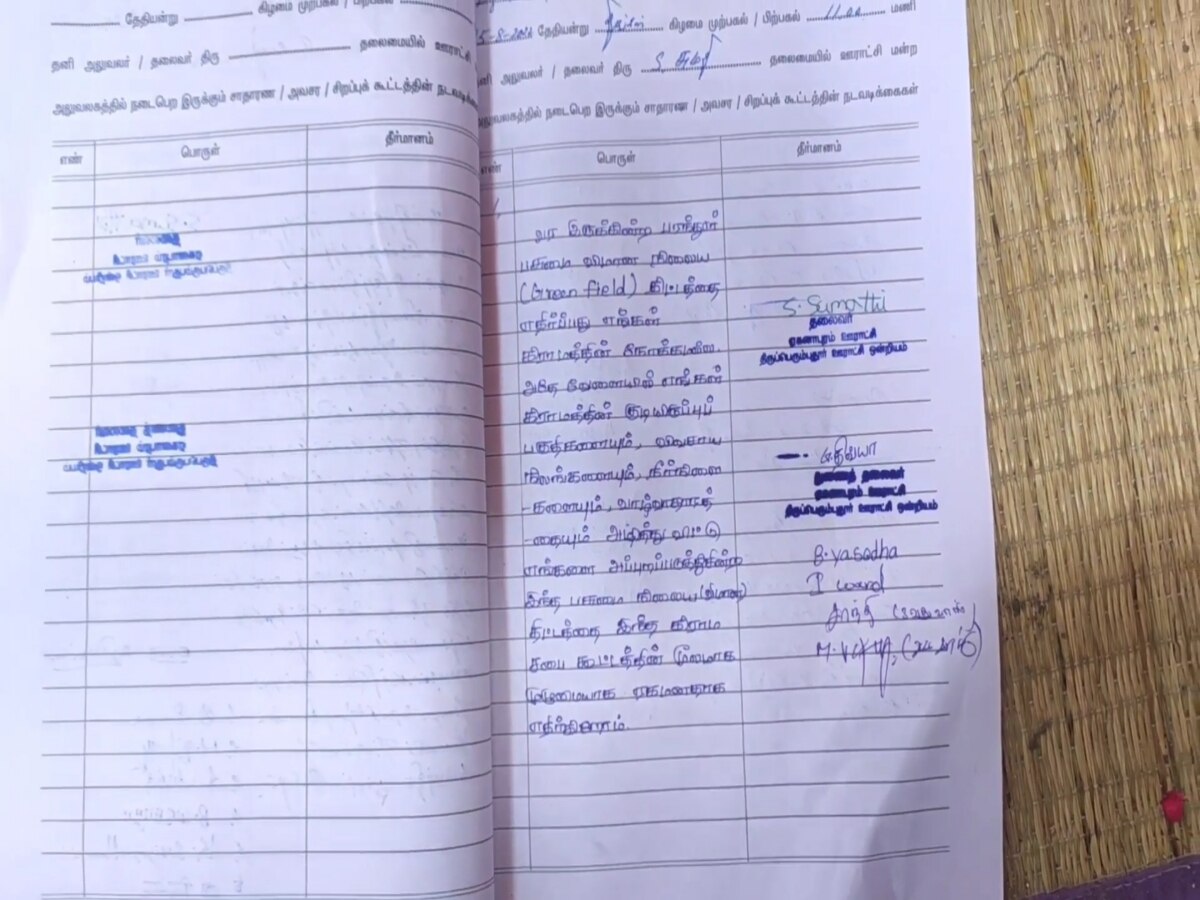 தேதியன்று கிழமை முற்பகல் / பிற்பகல்
தனி அலுவலர் / தலைவர் திரு தலைமையில் ஊராட்சி
அலுவலகத்தில் நடைபெற இருக்கும் சாதாரண / அவசர / சிறப்புக் கூட்டத்தின் நடவடிக்கை
எண் பொருள் தீர்மானம்
தேதியன்று கிழமை முற்பகல் / பிற்பகல் 11.00 மணி
தனி அலுவலர் / தலைவர் திரு தலைமையில் ஊராட்சி மன்ற
அலுவலகத்தில் நடைபெற இருக்கும் சாதாரண / அவசர / சிறப்புக் கூட்டத்தின் நடவடிக்கைகள்
எண் பொருள் தீர்மானம்
வர இருக்கின்ற பரந்தூர்
பசுமை விமான நிலைய
(Green field) திட்டத்தை
எதிர்ப்பது எங்கள்
கிராமத்தின் நோக்கமில்லை.
அதே வேளையில் எங்கள்
கிராமத்தின் குடியிருப்புப்
பகுதிகளையும், விவசாய
நிலங்களையும், நீர்நிலை
-களையும், வாழ்வாதாரத்
-தையும் அழித்து விட்டு
எங்களை அப்புறப்படுத்துகின்ற
இந்த பசுமை நிலைய (விமான)
திட்டத்தை இந்த கிராம
சபை கூட்டத்தின் மூலமாக
முழுமையாக ஏகமனதாக
எதிர்க்கிறோம்.
S. Sumathi
தலைவர்
ஏகனாபுரம் ஊராட்சி
திருப்பெரும்புதூர் ஊராட்சி ஒன்றியம்
சு.திவ்யா
துணைத் தலைவர்
ஏகனாபுரம் ஊராட்சி
திருப்பெரும்புதூர் ஊராட்சி ஒன்றியம்
B. yasodha
I ward